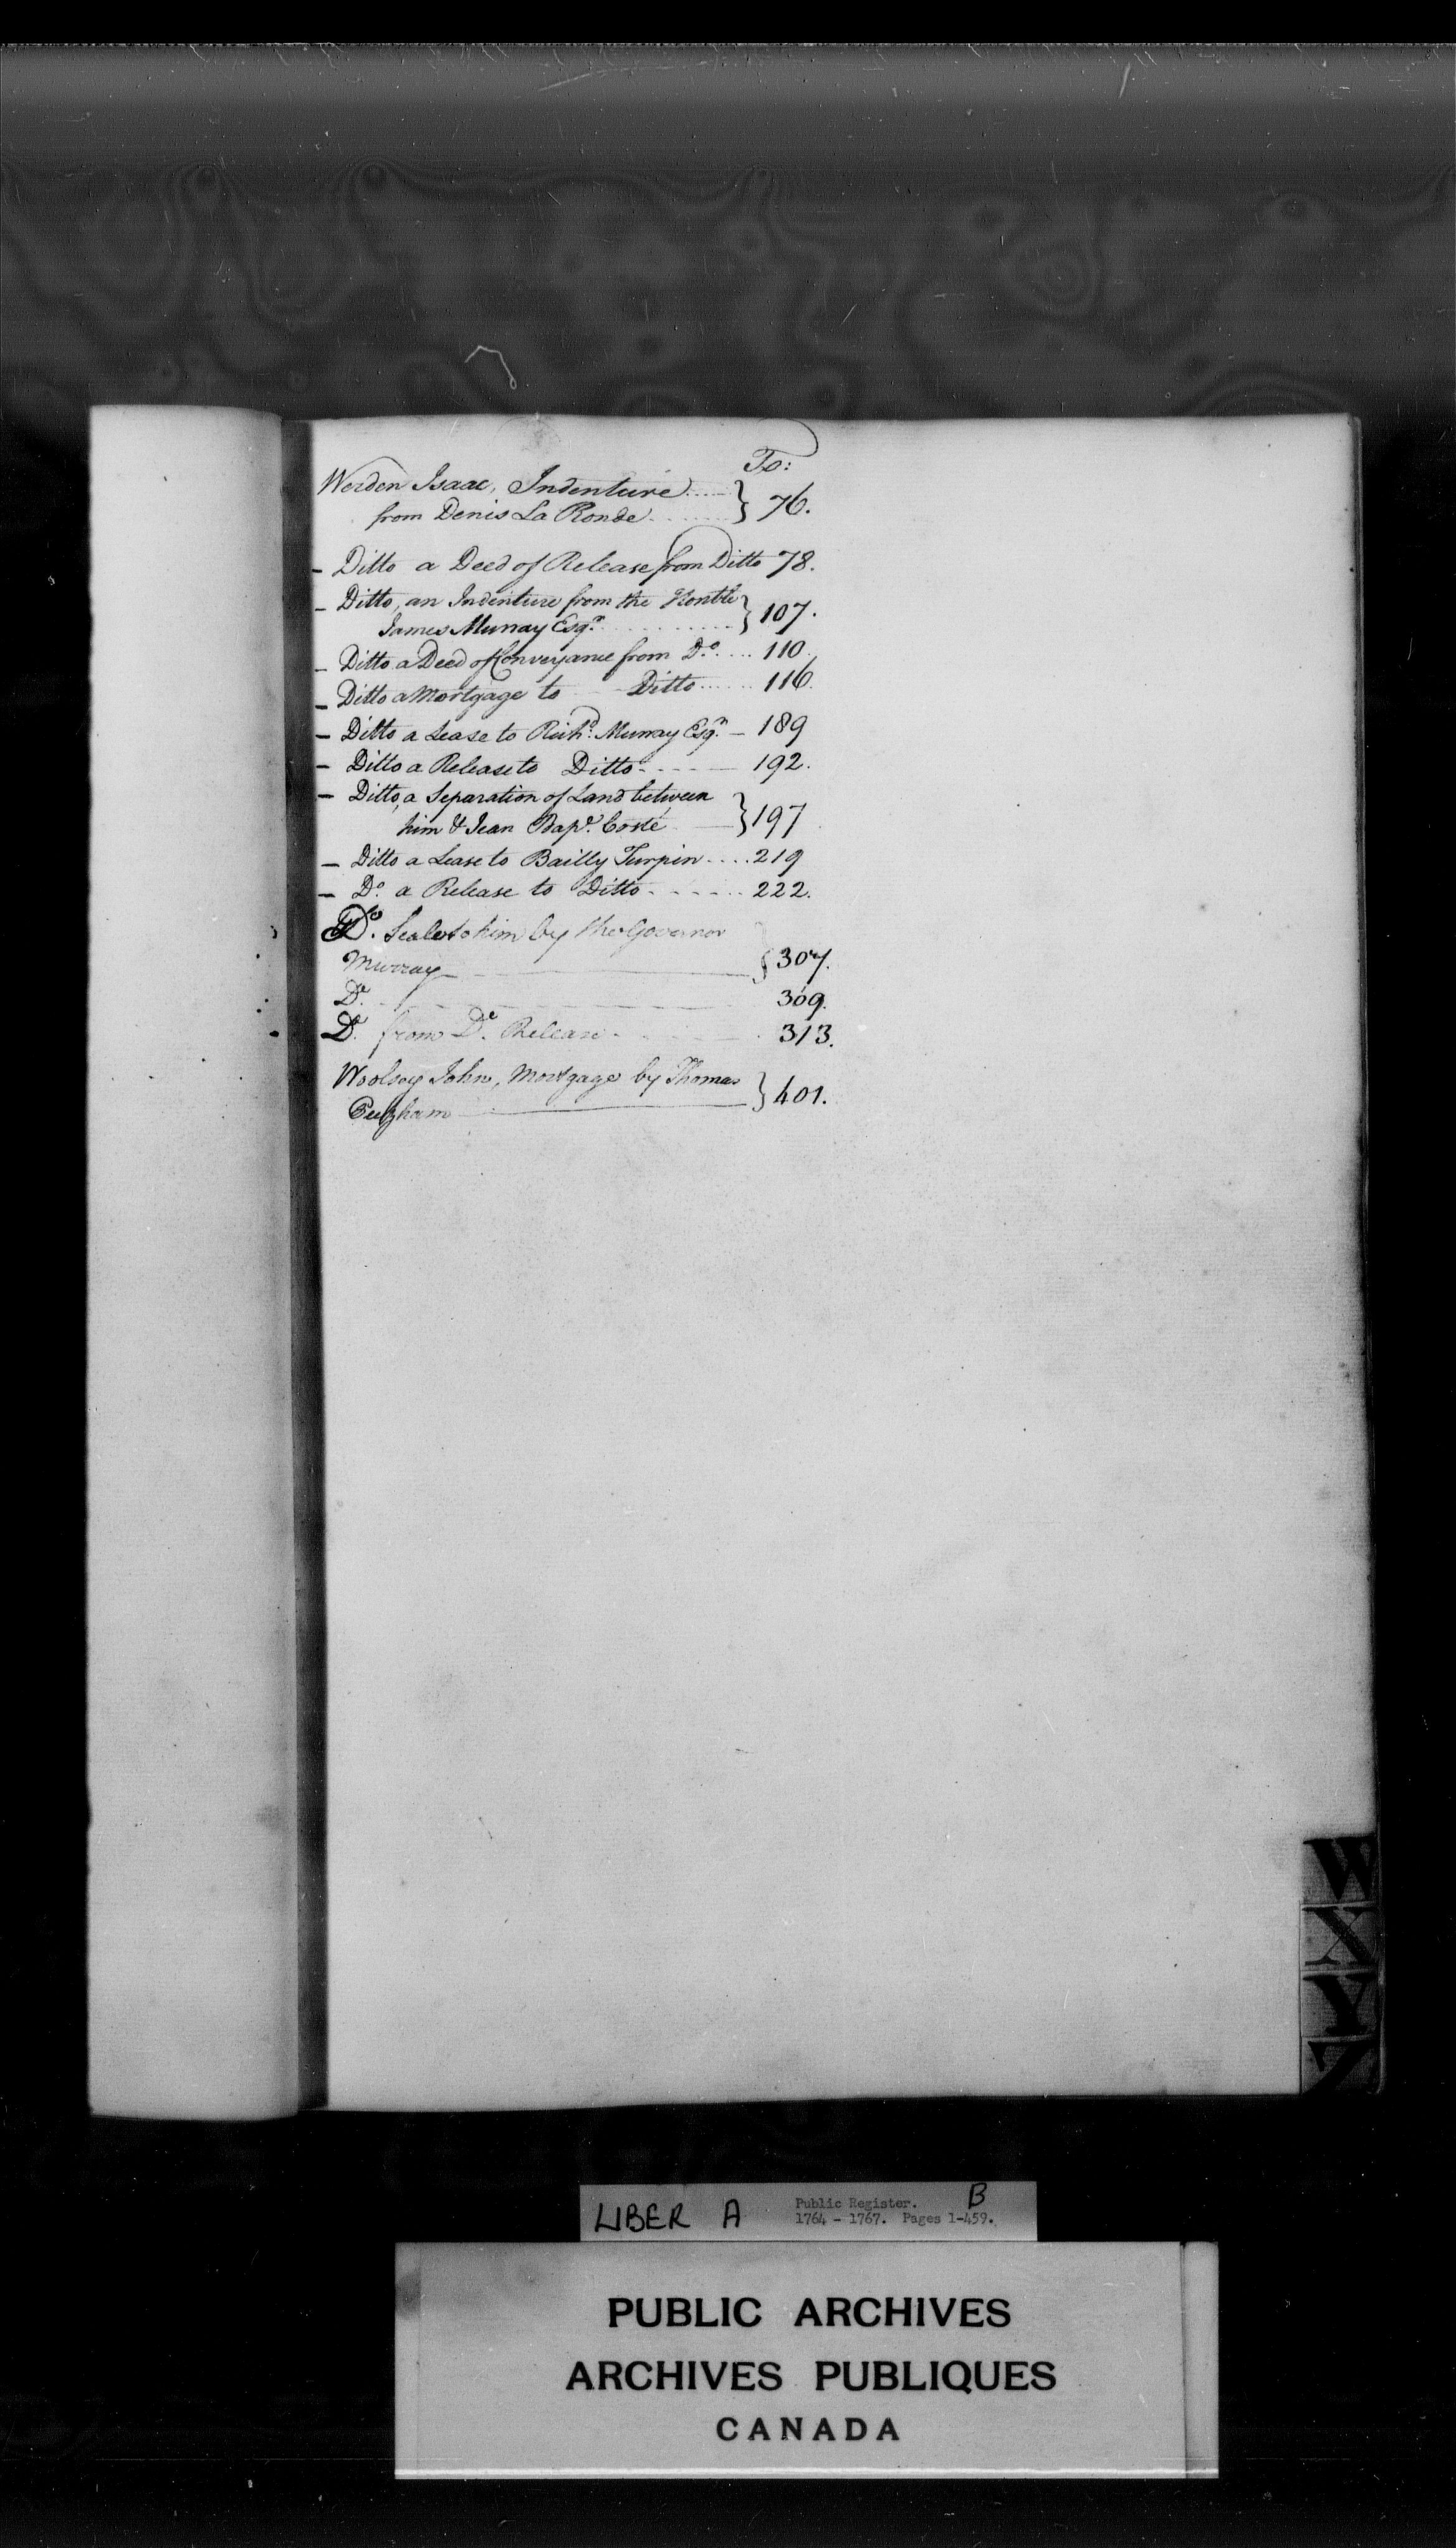 Fo:
Werden Isaac, Indenture .... } 76.
from Denis La Ronde .......
– Ditto a Deed of Release from Ditto 78.
– Ditto, an Indenture from the Honble } 107.
James Murray Esqr. ..........
– Ditto a Deed of Conveyance from Do. .... 110.
– Ditto a Mortgage to Ditto ...... 116.
– Ditto a Lease to Richd. Murray Esqr. – 189
– Ditto a Release to Ditto - - - - — 192.
– Ditto, a Separation of Land between } 197
him & Jean Bapt. Costé —
– Ditto a Lease to Bailly Turpin .... 219
– Do. a Release to Ditto - - - - - - 222.
Do. to him by the Governor
Murray — } 307.
Do. - - - - - 309.
Do. from Do. Release - - - 313.
Woolsey John, Mortgage by Thomas } 401.
W
X
Y
Z
LIBER A
Public Register. B
1764 - 1767. Pages 1-459.
PUBLIC ARCHIVES
ARCHIVES PUBLIQUES
CANADA